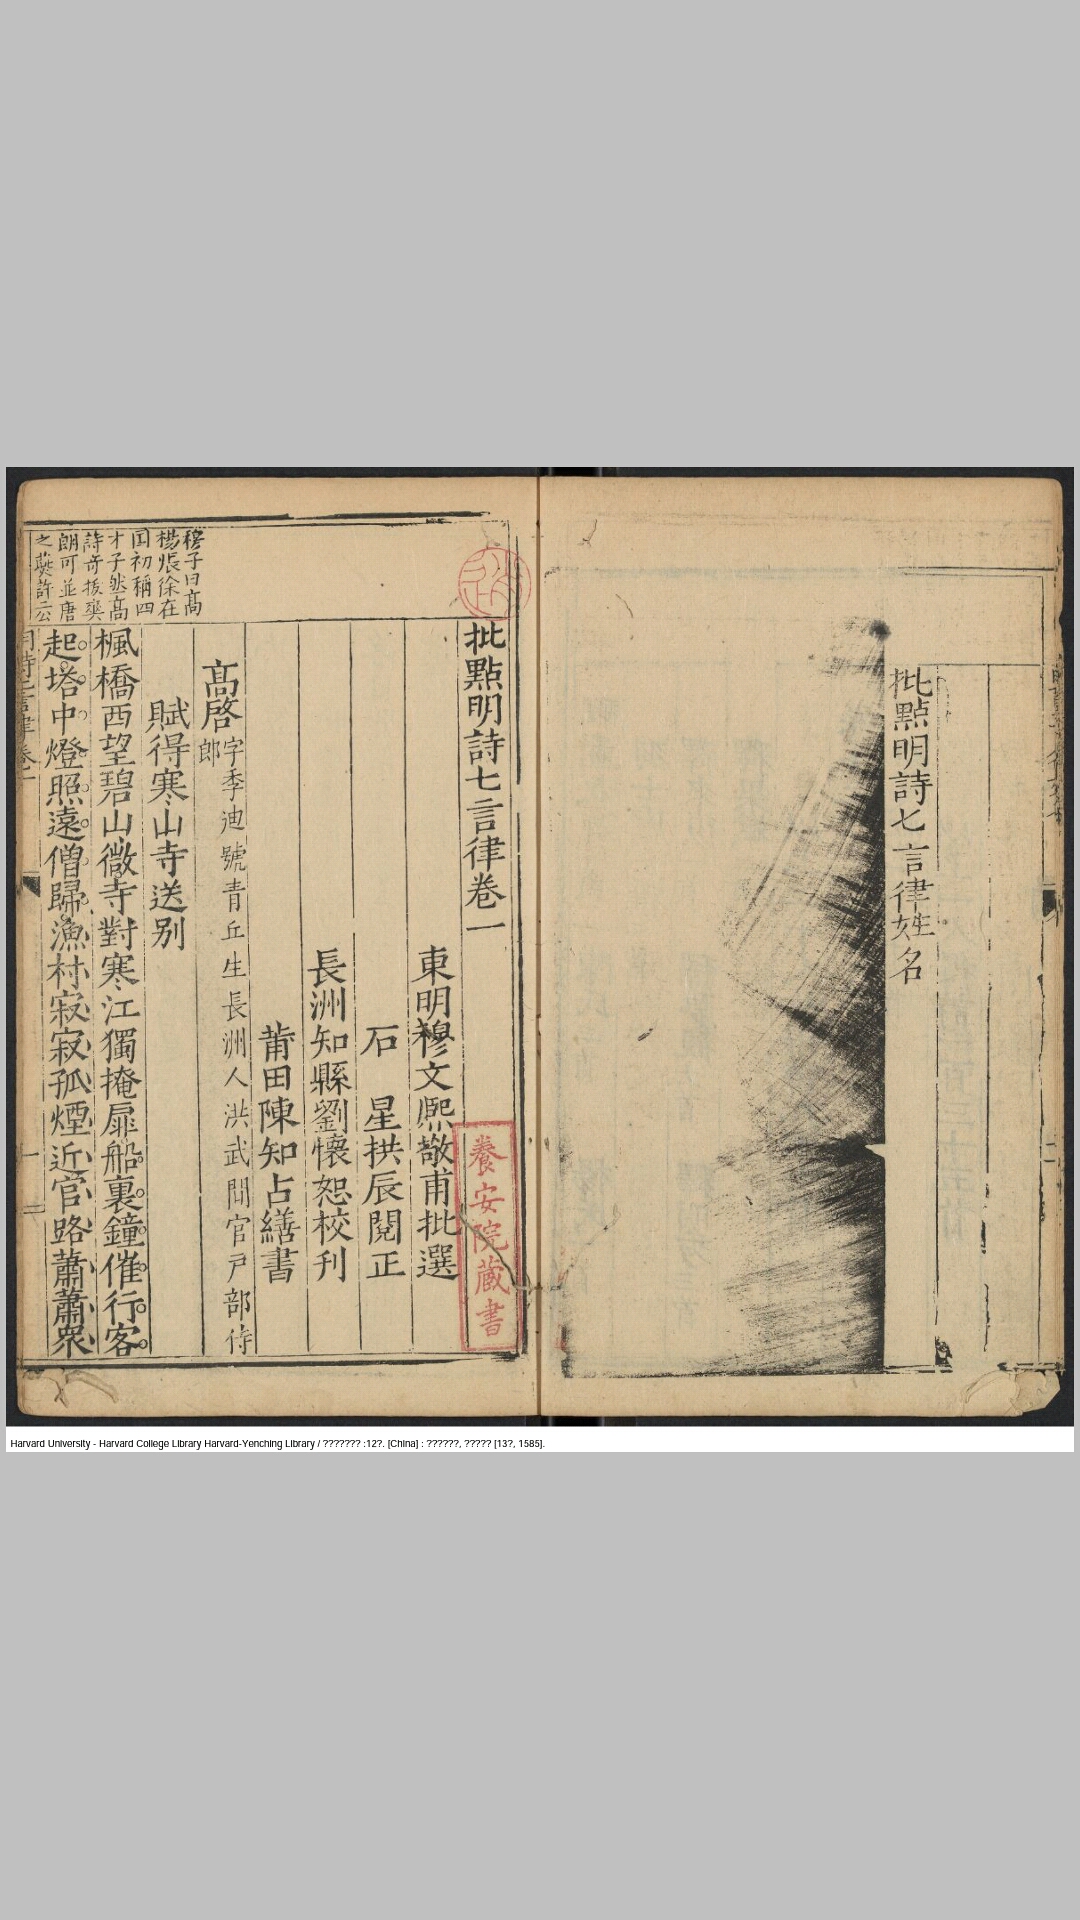 批點明詩七言律姓名
批點明詩七言律卷一
東明穆文熈敬甫批選
石 星拱辰閱正
長洲知縣劉懷恕校刊
莆田陳知占繕書
髙啓
字季迪號青丘生長洲人洪武間官戸部侍
郎
賦得寒山寺送別
楓橋西望碧山微寺對寒江獨掩扉船裏鐘催行客
起塔中燈照遠僧歸漁村寂寂孤煙近官路蕭蕭衆
穆子曰髙
楊張徐在
国初稱四
才子然髙
詩奇拔奭
朗可並唐
養安院藏書
Harvard University - Harvard College Library Harvard-Yenching Library / ??????? :12?. [China] : ??????, ????? [13?, 1585].